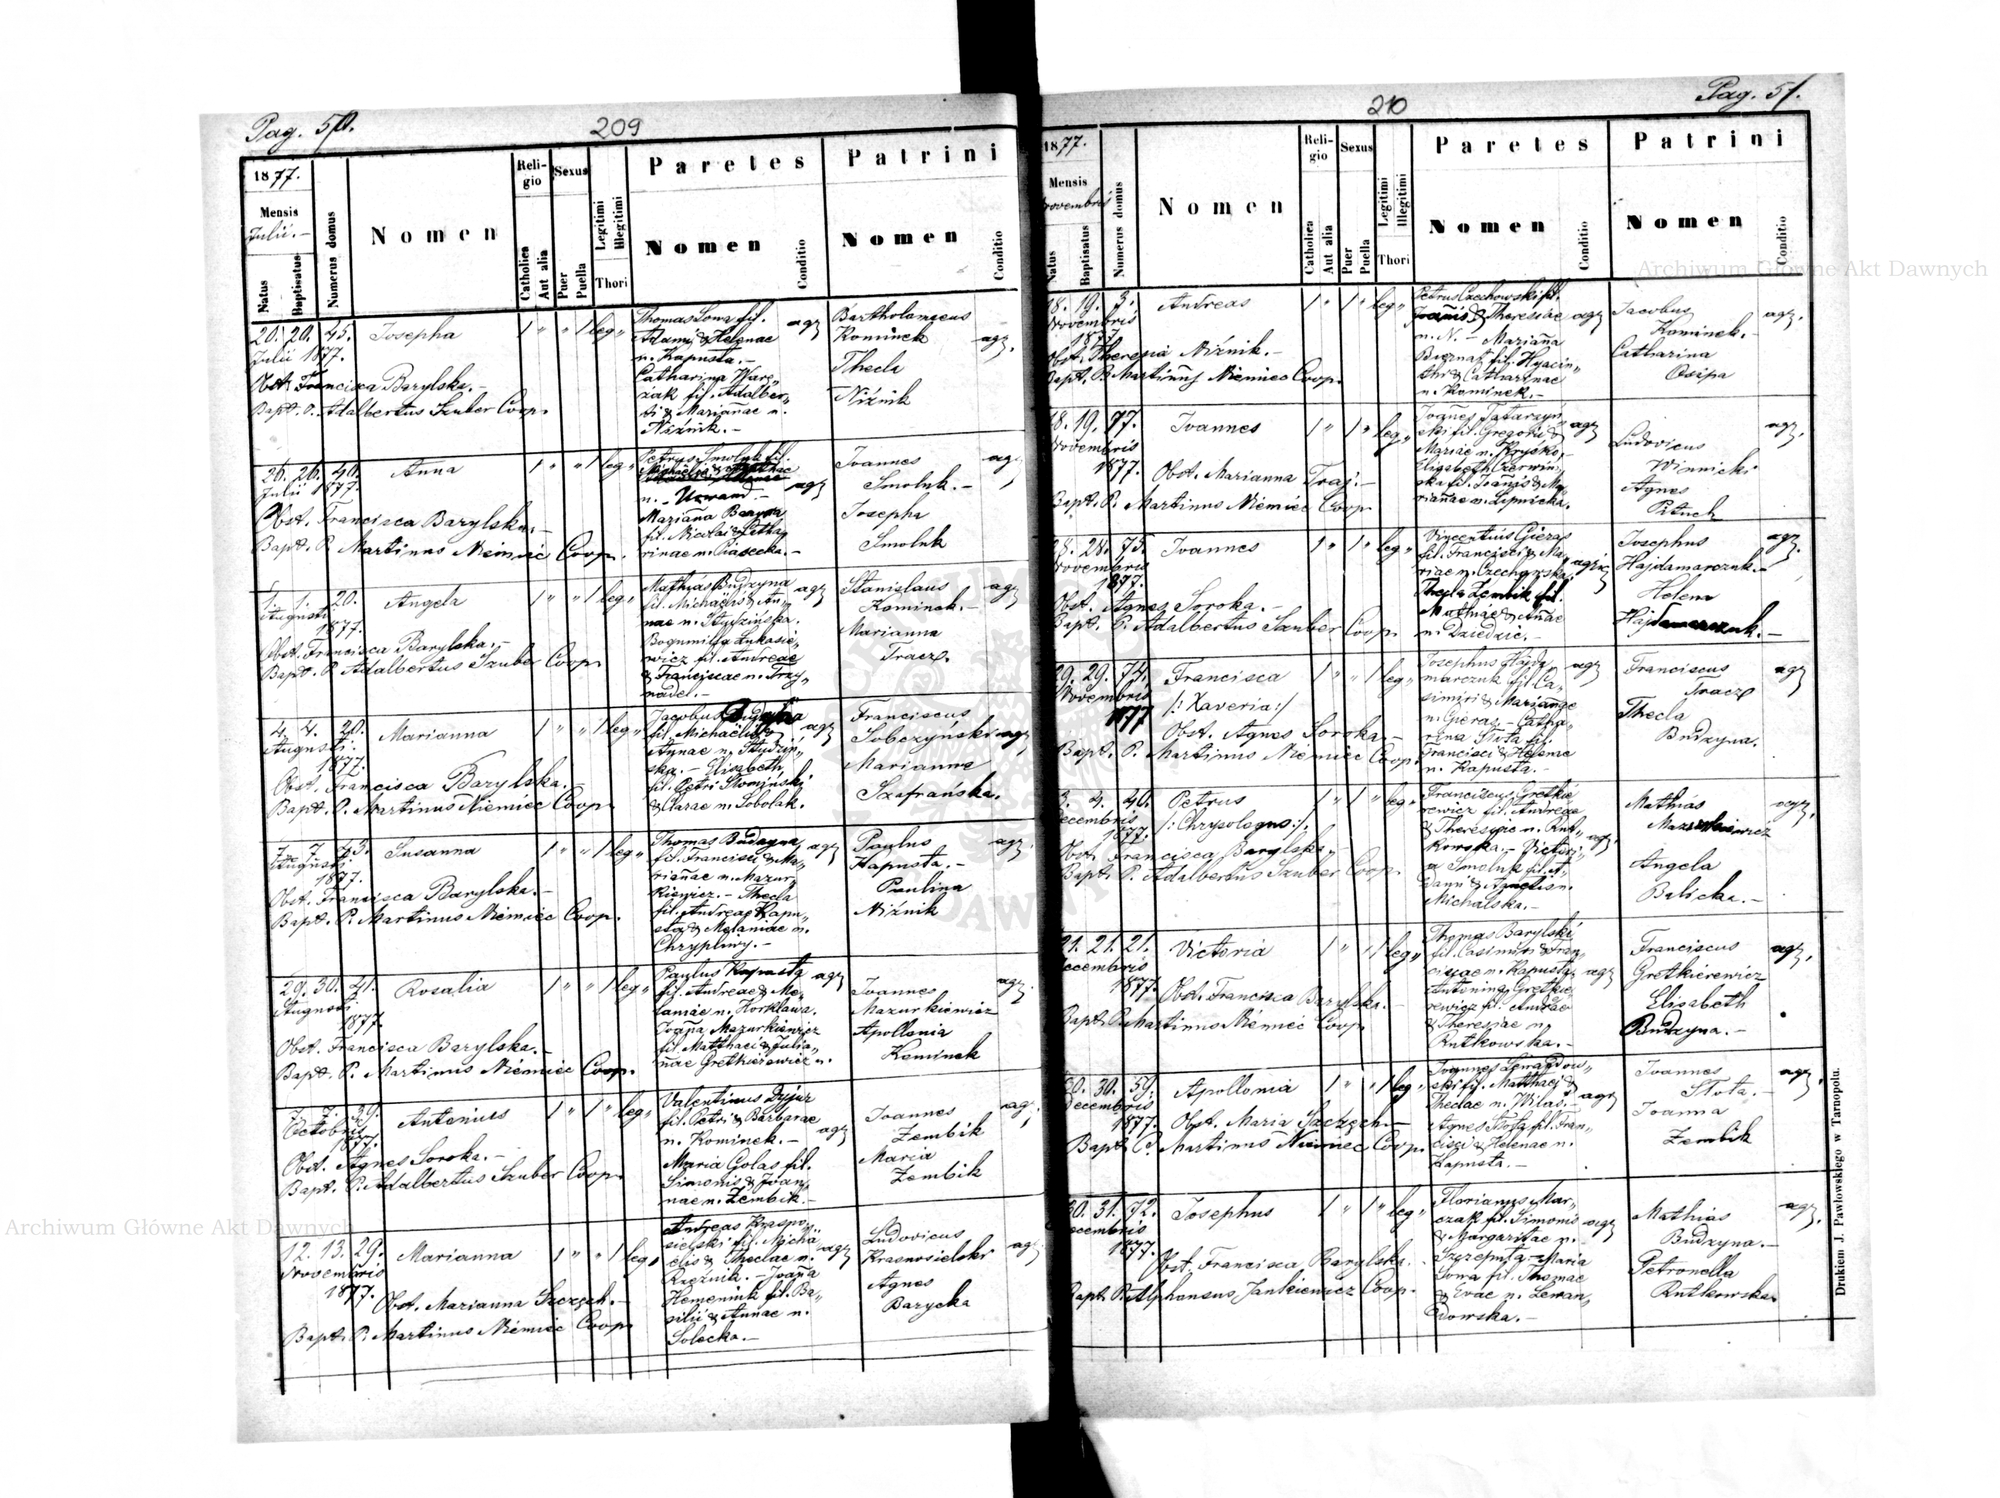 Pag. 50.
209
1877.
Mensis
Julii.-
Natus
Baptisatus
Numerus domus
Nomen
Religio
Catholica
Aut alia
Sexus
Puer
Puella
Legitimi
Illegitimi
Thori
Paretes
Nomen
Conditio
Patrini
Nomen
Conditio
20. 20. 45. Josepha 1 " " 1 leg"
Julii 1877.
Obst. Francisca Barylska.-
Bapt. P. Adalbertus Szuber Coop.
Thomas Sowa fil.
Adami & Helenae
n. Kapusta.-
Catharina War-
fil. Adalber-
ti & Mariañae n.
Niźnik.-
agr
Bartholomaeus
Kominek
Thecla
Niźnik
agr.
26. 26. 40. Anna 1 " " 1 leg"
Julii 1877.
Obst. Francisca Barylska.-
Bapt. P. Martinus Niemiec Coop.
Petrus Smoluk fil.
n.
Mariañna
fil. Nicolai & Catha-
rinae n. Piasecka.-
agr
Joannes
Smoluk.-
Josepha
Smoluk
agr
1. 1. 20. Angela 1 " " 1 leg"
Augusti
1877.
Obst. Francisca Barylska.-
Bapt. P. Adalbertus Szuber Coop.
Mathias Budzyna
fil. Michaëlis & An-
nae n. Studzińska.
Bogumilla Łukasie-
wicz fil. Andreae
& Franciscae n. Trzy-
nadel.-
agr
Stanislaus
Kominek.-
Marianna
Tracz.
agr
4. 4. 20. Marianna 1 " " 1 leg"
Augusti
1877.
Obst. Francisca Barylska.-
Bapt. P. Martinus Niemiec Coop.
Jacobus Budzyna
fil. Michaëlis &
Annae n. Studziń-
ska.- Elisabeth
fil. Petri Słomiński
& Clarae n. Sobolak.
agr
Franciscus
Sobczyński
Marianna
Szafrańska.
agr
7. 7. 43. Susanna 1 " " 1 leg"
Augusti
1877.
Obst. Francisca Barylska.-
Bapt. P. Martinus Niemiec Coop.
Thomas Budzyna
fil. Francisci & Ma-
riañae n. Mazur-
kiewicz.- Thecla
fil. Andreae Kapu-
sta & Melaniae n.
Chrypliwy.-
agr
Paulus
Kapusta.-
Paulina
Niźnik
agr.
29. 30. 41. Rosalia 1 " " 1 leg"
Augusti
1877.
Obst. Francisca Barylska.-
Bapt. P. Martinus Niemiec Coop.
Paulus Kapusta
fil. Andreae & Me-
laniae n. Horkława.
Joaña Mazurkiewicz
fil. Matthaei & Julia-
ñae Gretkierewicz n.
agr
Joannes
Mazurkiewicz
Apollonia
Kominek
agr.
7. 7. 39. Antonius 1 " 1 " leg"
Octobris
1877.
Obst. Agnes Soroka.-
Bapt. P. Adalbertus Szuber Coop.
Valentinus Dyjur
fil. Petri & Barbarae
n. Kominek.-
Maria Golas fil.
Simonis & Joañ-
nae n. Zembik.-
agr
Joannes
Zembik
Maria
Zembik
agr.
12. 13. 29. Marianna 1 " " 1 leg"
Novembris
1877.
Obst. Marianna Szczęch.-
Bapt. P. Martinus Niemiec Coop.
Andreas Kraspo-
sielski fil. Micha-
elis & Theclae n.
Rzeźnik.- Joaña
Hemeniuk fil. Ba-
silii & Annae n.
Solecka.-
agr
Ludovicus
Krasnosielski
Agnes
Barycka
agr
Pag. 51.
210
1877.
Mensis
Novembris
Natus
Baptisatus
Numerus domus
Nomen
Religio
Catholica
Aut alia
Sexus
Puer
Puella
Legitimi
Illegitimi
Thori
Paretes
Nomen
Conditio
Patrini
Nomen
Conditio
18. 19. 3. Andreas 1 " 1 " leg"
Novembris
1877
Obst. Theresia Niźnik.-
Bapt. P. Martinus Niemiec Coop.
Petrus Czechowski fil.
Joañis & Theresiae
n. N. - Mariaña
Buznat fil. Hyacin-
thi & Catharinae
n. Kominek.-
agr
Jacobus
Kominek.-
Catharina
Osipa
agr.
18. 19. 77. Joannes 1 " 1 " leg"
Novembris
1877. Obst. Marianna Traj.-
Bapt. P. Martinus Niemiec Coop.
Joañes Tatarzyń-
ski fil. Gregorii &
Mariae n. Krysko.-
Elisabeth Czerwiń-
ska fil. Joañis & Ma-
riañae n. Lipnicka.
agr
Ludovicus
Winnicki
Agnes
Ptuch
agr.
28. 28. 75. Joannes 1 " 1 " leg"
Novembris
1877.
Obst. Agnes Soroka.-
Bapt. P. Adalbertus Szuber Coop.
Vincentius Gieras
fil. Francisci & Ma-
riae n. Czechowska.
Thecla Zembik fil.
Mathiae & Añae
n. Dziedzic.-
agr
Josephus
Hajdamarczuk.-
Helena
Hajdamarczuk.-
agr.
29. 29. 74. Francisca 1 " " 1 leg"
Novembris /: Xaveria:/
1877
Obst. Agnes Soroka.-
Bapt. P. Martinus Niemiec Coop.
Josephus Hajda-
marczuk fil. Ca-
simiri & Mariañae
n. Gieras.- Catha-
rina Słota fil.
Francisci & Helenae
n. Kapusta.-
agr
Franciscus
Tracz
Thecla
Budzyna.
agr
3. 4. 40. Petrus 1 " 1 " leg"
Decembris /: Chrysologus:/.
1877.
Obst. Francisca Barylska.-
Bapt. P. Adalbertus Szuber Coop.
Franciscus Gretkie-
rewicz fil. Andreae
& Theresiae n. Rut-
kowska.- Victori-
a Smoluk fil. A-
dami & Agnetis n.
Michalska.-
agr
Mathias
Mazurkiewicz
Angela
Balicka.-
agr.
21. 21. 21. Victoria 1 " " 1 leg"
Decembris
1877.
Obst. Francisca Barylska.-
Bapt. P. Martinus Niemiec Coop
Thomas Barylski
fil. Casimiri & Fran-
ciscae n. Kapusta
Antonina Gretkie-
rewicz fil. Andreae
& Theresiae n.
Rutkowska.-
agr
Franciscus
Gretkierewicz
Elisabeth
Budzyna.-
agr.
30. 30. 59. Apollonia 1 " " 1 leg"
Decembris
1877. Obst. Maria Szczęch.-
Bapt. P. Martinus Niemiec Coop.
Joannes Lewandow-
ski fil. Matthaei &
Theclae n. Wilas.-
Agnes Słota fil. Fran-
cisci & Helenae n.
Kapusta.-
agr
Joannes
Słota.-
Joanna
Zembik
agr.
30. 31. 72. Josephus 1 " 1 " leg"
Decembris
1877.
Obst. Francisca Barylska.
Bapt. P. Alphonsus Jankiewicz Coop.
Florianus Mar-
czak fil. Simonis
& Margaritae n.
Szczepuła.- Maria
Sowa fil. Thomae
& Evae n. Lewan-
dowska.-
agr
Mathias
Budzyna.-
Petronella
Rutkowska
agr.
Drukiem J. Pawłowskiego w Tarnopolu.
Archiwum Główne Akt Dawnych
Archiwum Główne Akt Dawnych